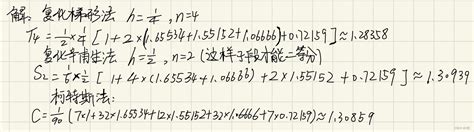 解: 复化梯形法 h=1/4, n=4
T4 = 1/2×1/4 [1+2×(1.65534+1.55152+1.06666)+0.72159]≈1.28358
复化辛甫生法 h=1/2, n=2 (这样子段才能二等分)
S2 = 1/6×1/2 [1+4×(1.65534+1.06666)+2×1.55152+0.72159]≈1.30939
柯特斯法:
C=1/90 (7×1+32×1.65534+12×1.55152+32×1.06666+7×0.72159)≈1.30859